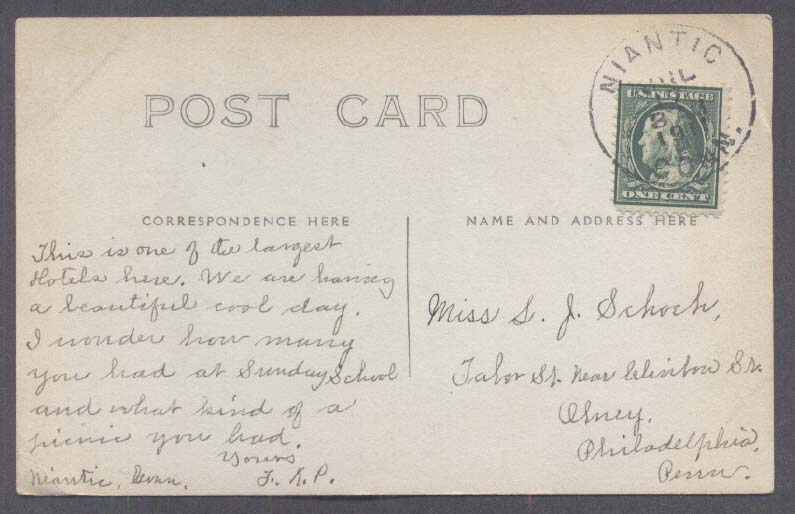 POST CARD
NIANTIC
CONN.
JUL
U.S. POSTAGE
ONE CENT
CORRESPONDENCE HERE
NAME AND ADDRESS HERE
This is one of the largest
Hotels here. We are having
a beautiful cool day.
I wonder how many
you had at Sunday School
and what kind of a
picnic you had.
Yours
Niantic, Conn. F. K. P.
Miss S. J. Schoch,
Tabor St. Near Clinton St.
Olney,
Philadelphia,
Penn.